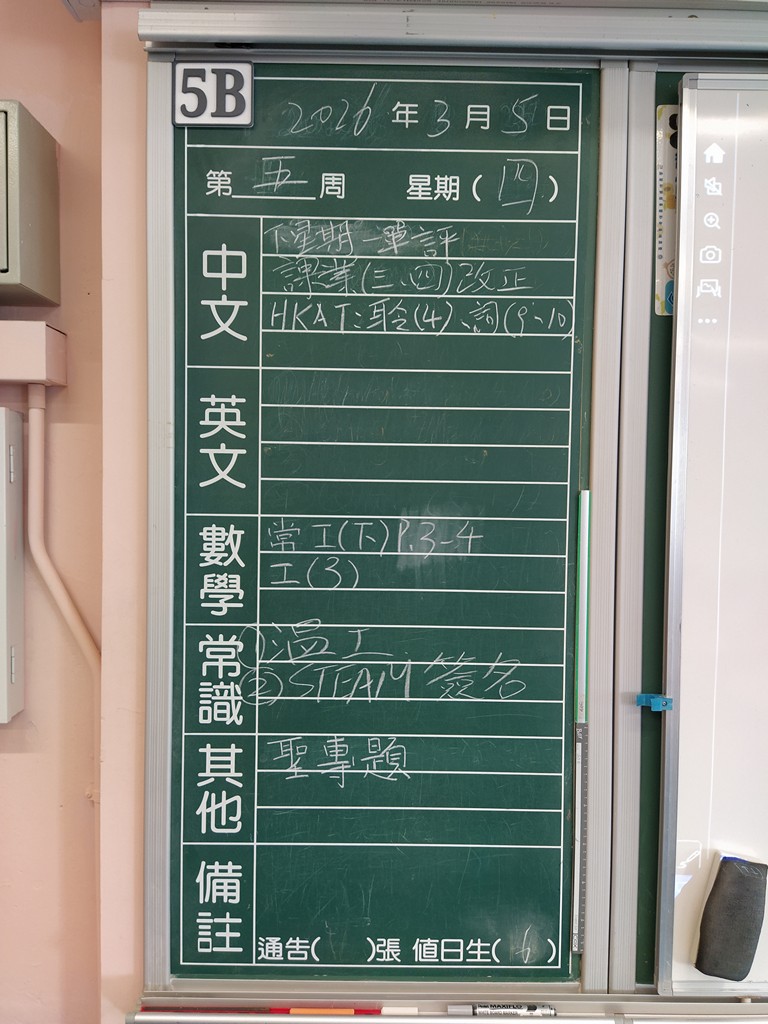 5B
2026年3月5日
第五周 星期(四)
中文
下星期一單評
課業(三、四)改正
HKAT:聆(4)、詞(9、10)
英文
數學
常工(下)P.3-4
工(3)
常識
①溫工
②STEAM簽名
其他
聖專題
備註
通告( )張 值日生(6)